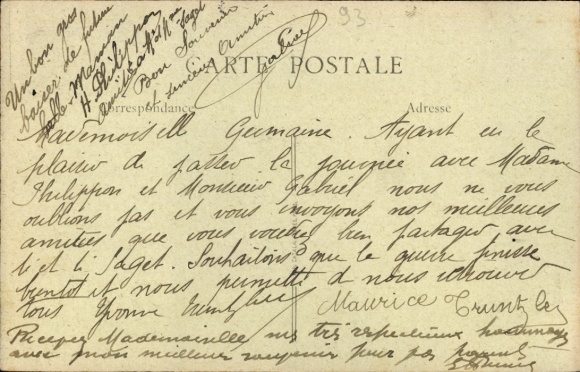 93
Un bon gros
baiser de future
belle Maman
H Philippon
Amitiés à Mr et Mme Saget
Bon Souvenir
et sincère Amitié
Gabriel
CARTE POSTALE
Correspondance
Adresse
Mademoiselle Germaine. Ayant eu le
plaisir de passer la journée avec Madame
Philippon et Monsieur Gabriel nous ne vous
oublions pas et vous envoyons nos meilleures
amitiés que vous voudrez bien partager avec
et Saget. Souhaitons que la guerre finisse
bientot et nous permette de nous retrouver
tous Yvonne
Maurice Truntzler
Recevez Mademoiselle mes très respectueux hommages
avec mon meilleur souvenir pour